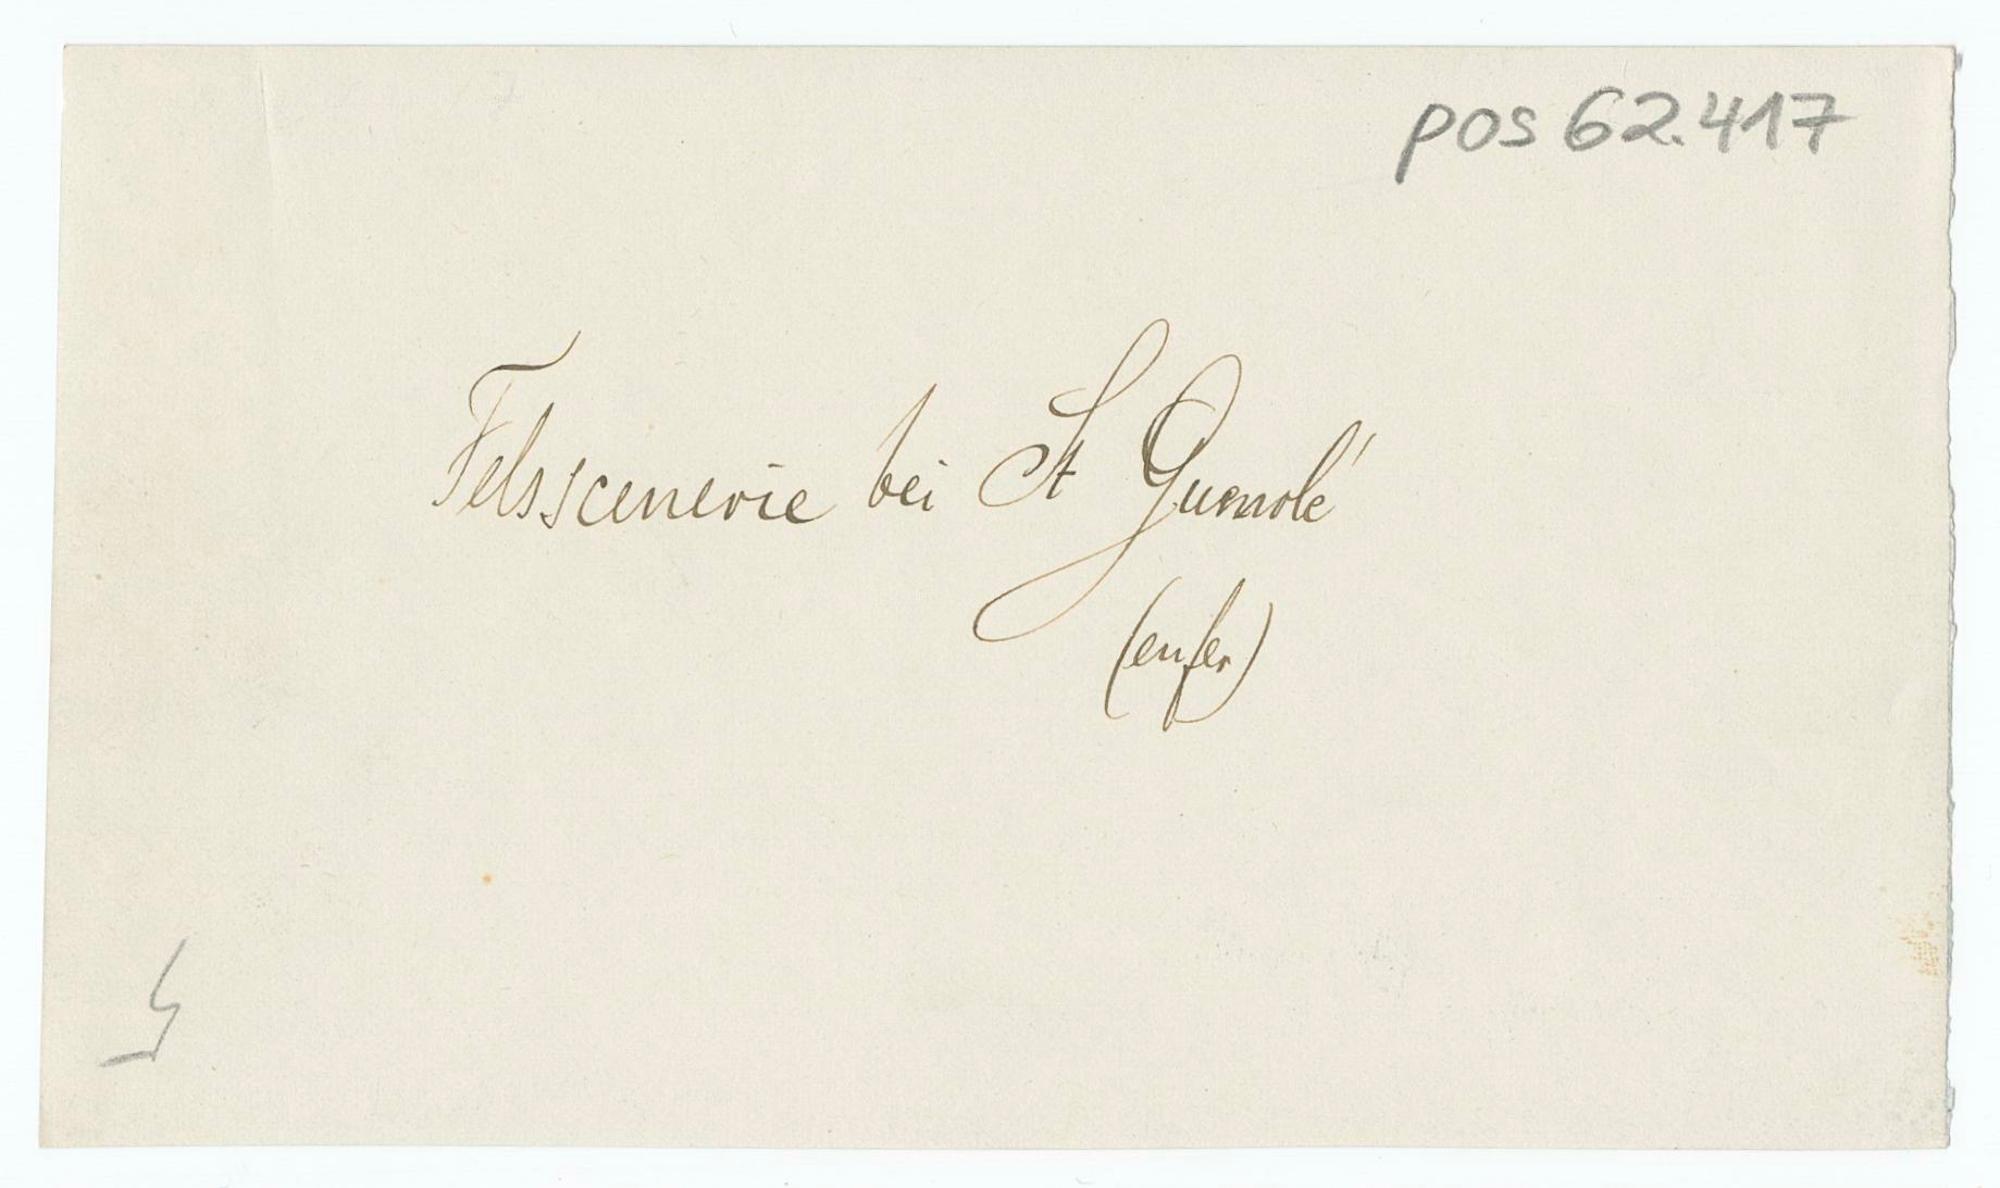 pos 62.417
Felsscenerie bei St Guenolé
(enfer)